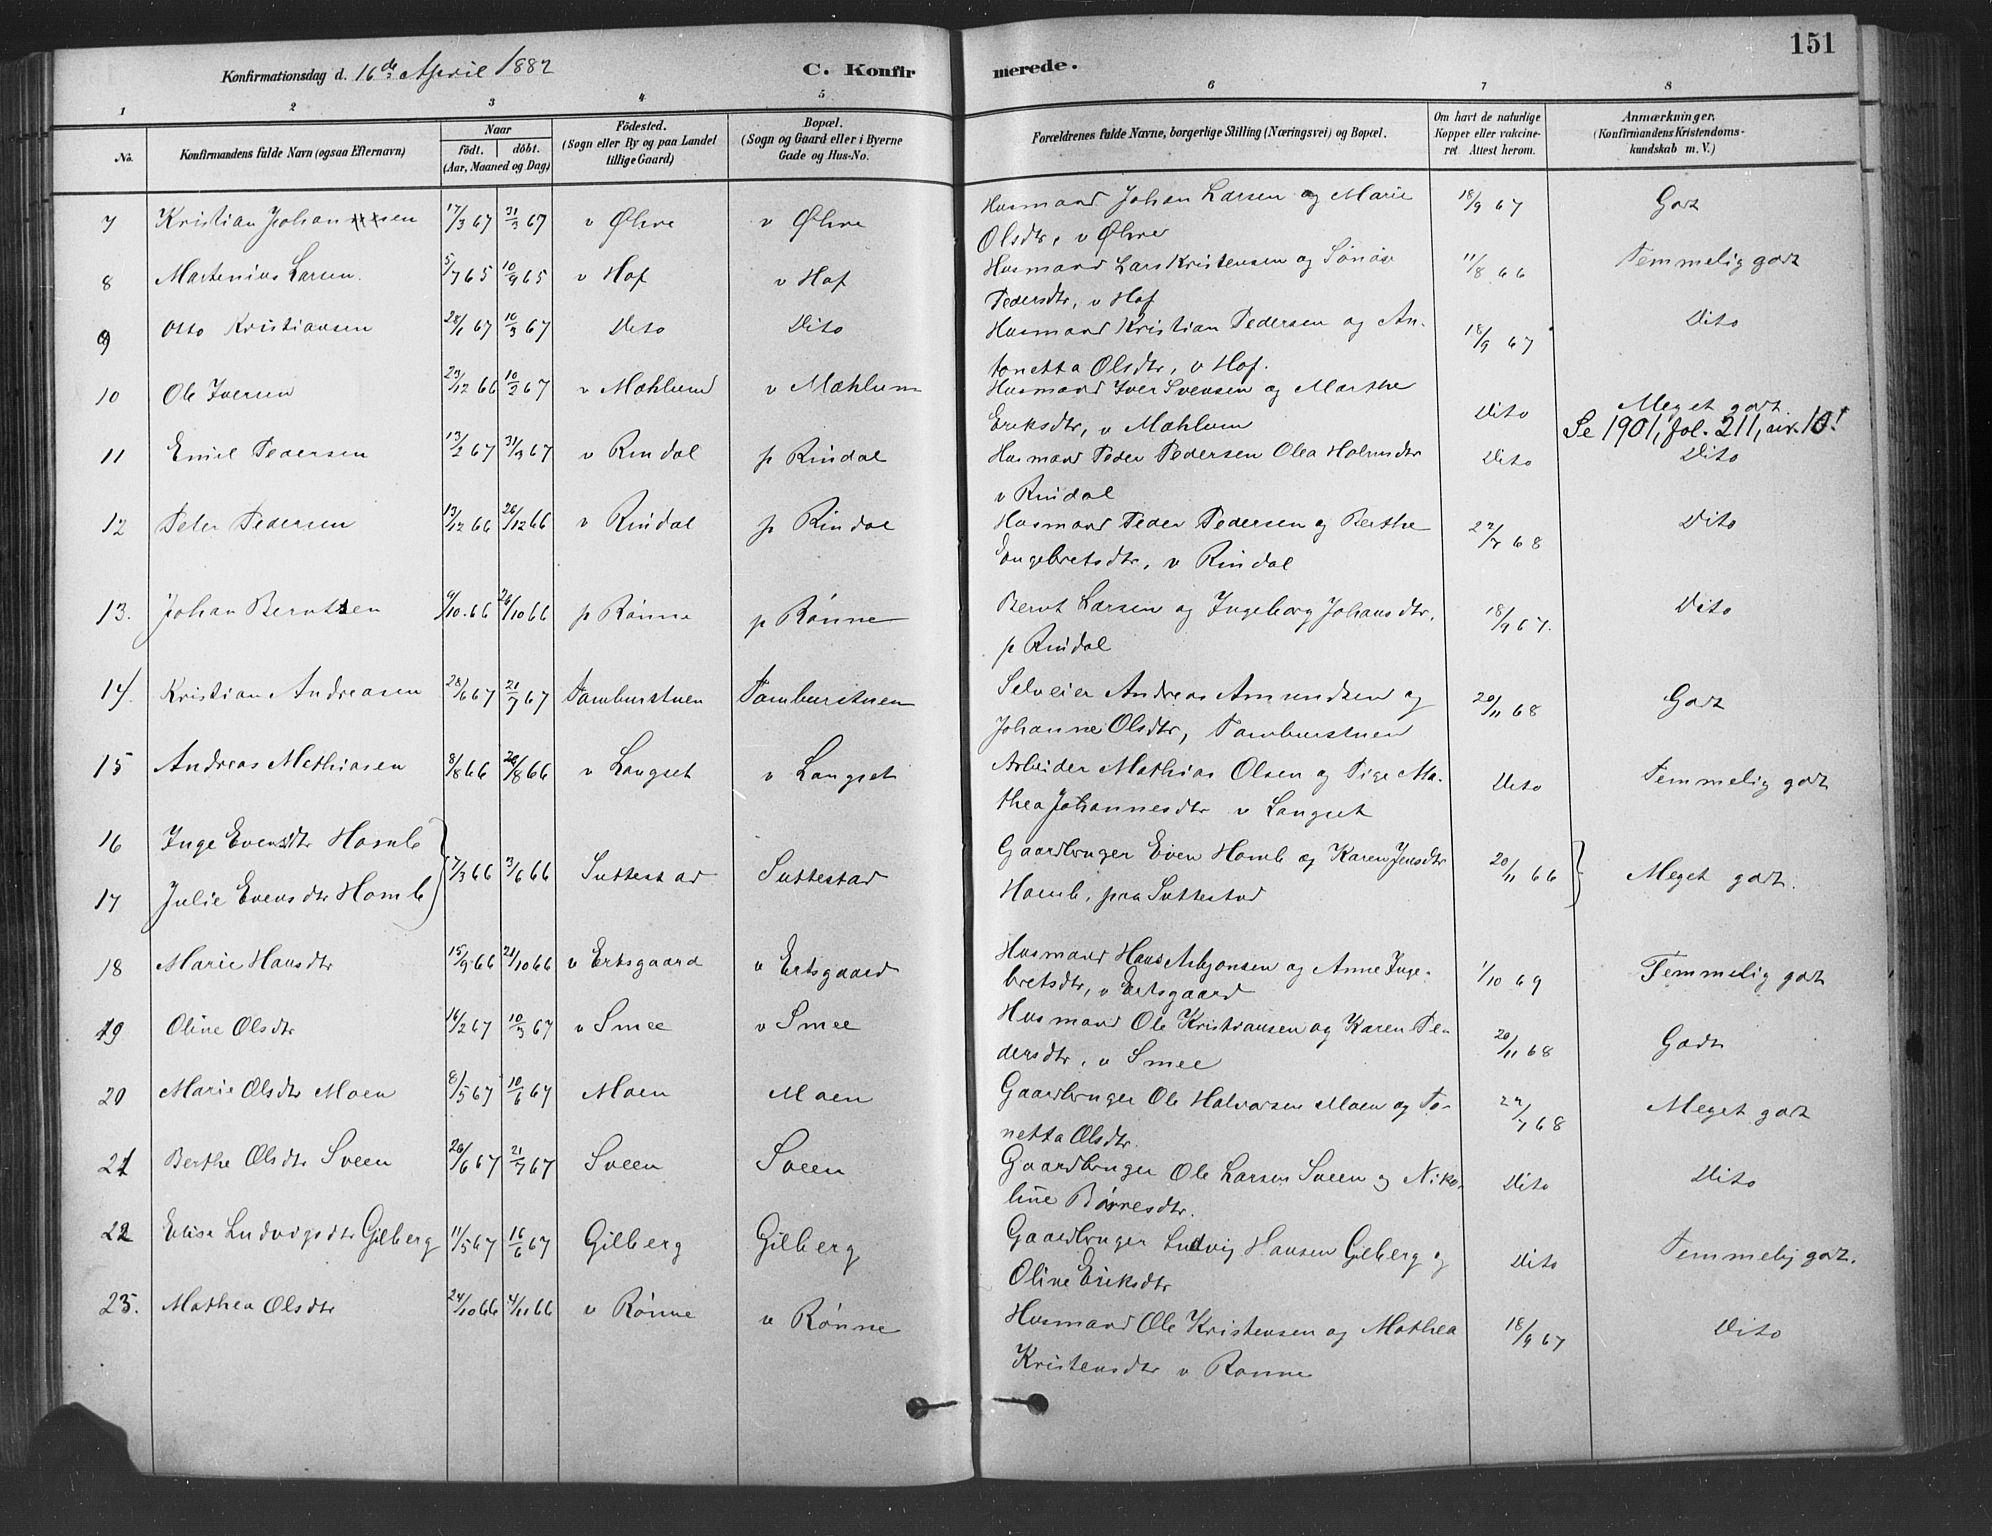 151
Konfirmationsdag d. 16de April 1882 C. Konfirmerede.
1 2 3 4 5 6 7 8
No. Konfirmandens fulde Navn (ogsaa Efternavn) Naar födt. döbt. (Aar, Maaned og Dag) Födested. (Sogn eller By og paa Landet tillige Gaard) Bopæl. (Sogn og Gaard eller i Byerne Gade og Hus-No. Forældrenes fulde Navne, borgerlige Stilling (Næringsvei) og Bopæl. Om havt de naturlige Kopper eller vakcineret Attest herom. Anmærkninger. (Konfirmandens Kristendomskundskab m. V.)
7 Kristian Johansen 17/3 67 31/3 67 v Øhre v Øhre Husmand Johan Larsen og Marie 18/9 67 Godt
Olsdtr, v Øhre
8 Martenius Larsen. 5/7 65 10/9 65 v Hof v Hof Husmand Lars Kristensen og Sönöv 11/8 66 Temmelig godt
Pedersdtr, v Hof
9 Otto Kristiansen 28/1 67 10/3 67 Dito Dito Husmand Kristian Pedersen og An- 18/9 67 Dito
tonetta Olsdtr, v Hof.
10 Ole Iversen 23/12 66 10/2 67 v Mæhlum v Mæhlum Husmand Iver Svensen og Marthe Dito Meget godt.
Eriksdtr, v Mæhlum Se 1901, fol. 211, nr. 10!
11 Emil Pedersen 13/2 67 31/3 67 v Rindal p Rindal Husmand Peder Pedersen Olea Holmsdtr Dito Dito
v Rindal
12 Peter Pedersen 13/12 66 26/12 66 v Rindal p Rindal Husmand Peder Pedersen og Berthe 22/7 68 Dito
Engebretsdtr, v Rindal
13. Johan Berntsen 9/10 66 26/10 66 p Rönne p Rönne Bernt Larsen og Ingeborg Johansdtr, 18/9 67. Dito
p Rindal
14. Kristian Andreasen 28/6 67 21/7 67 Tamburstuen Tamburstuen Selveier Andreas Amundsen og 20/11 68 Godt
Johanne Olsdtr, Tamburstuen
15 Andreas Mathiasen 8/8 66 26/8 66 v Langset v Langset Arbeider Mathias Olsen og Pige Ma- Dito Temmelig godt
thea Johannesdtr v Langset
16 Inge Evensdtr Homb 17/3 66 3/6 66 Suttestad Suttestad Gaardbruger Even Homb og Karen Jensdtr 20/11 66 Meget godt.
17 Julie Evensdtr Homb Homb, paa Suttestad
18 Marie Hansdtr 15/9 66 21/10 66 v Ertsgaard v Ertsgaard Husmand Hans Asbjønsen og Anne Inge- 1/10 69 Temmelig godt
bretsdtr, v Ertsgaard
19 Oline Olsdtr 16/2 67 10/3 67 v Smee v Smee Husmand Ole Kristiansen og Karen Pe- 20/11 68 Godt
dersdtr, v Smee
20 Marie Olsdtr Moen 8/5 67 10/6 67 Moen Moen Gaardbruger Ole Halvorsen Moen og To- 22/7 68 Meget godt
netta Olsdtr.
21 Berthe Olsdtr Sveen 26/6 67 21/7 67 Sveen Sveen Gaardbruger Ole Larsen Sveen og Niko- Dito Dito
line Börresdtr.
22 Elise Ludvigsdtr Gilberg 11/5 67 16/6 67 Gilberg Gilberg Gaardbruger Ludvig Hansen Gilberg og Dito Temmelig godt.
Oline Eriksdtr
23. Mathea Olsdtr 24/10 66 4/11 66 v Rönne v Rönne Husmand Ole Kristensen og Mathea 18/9 67 Dito
Kristensdtr v Rönne